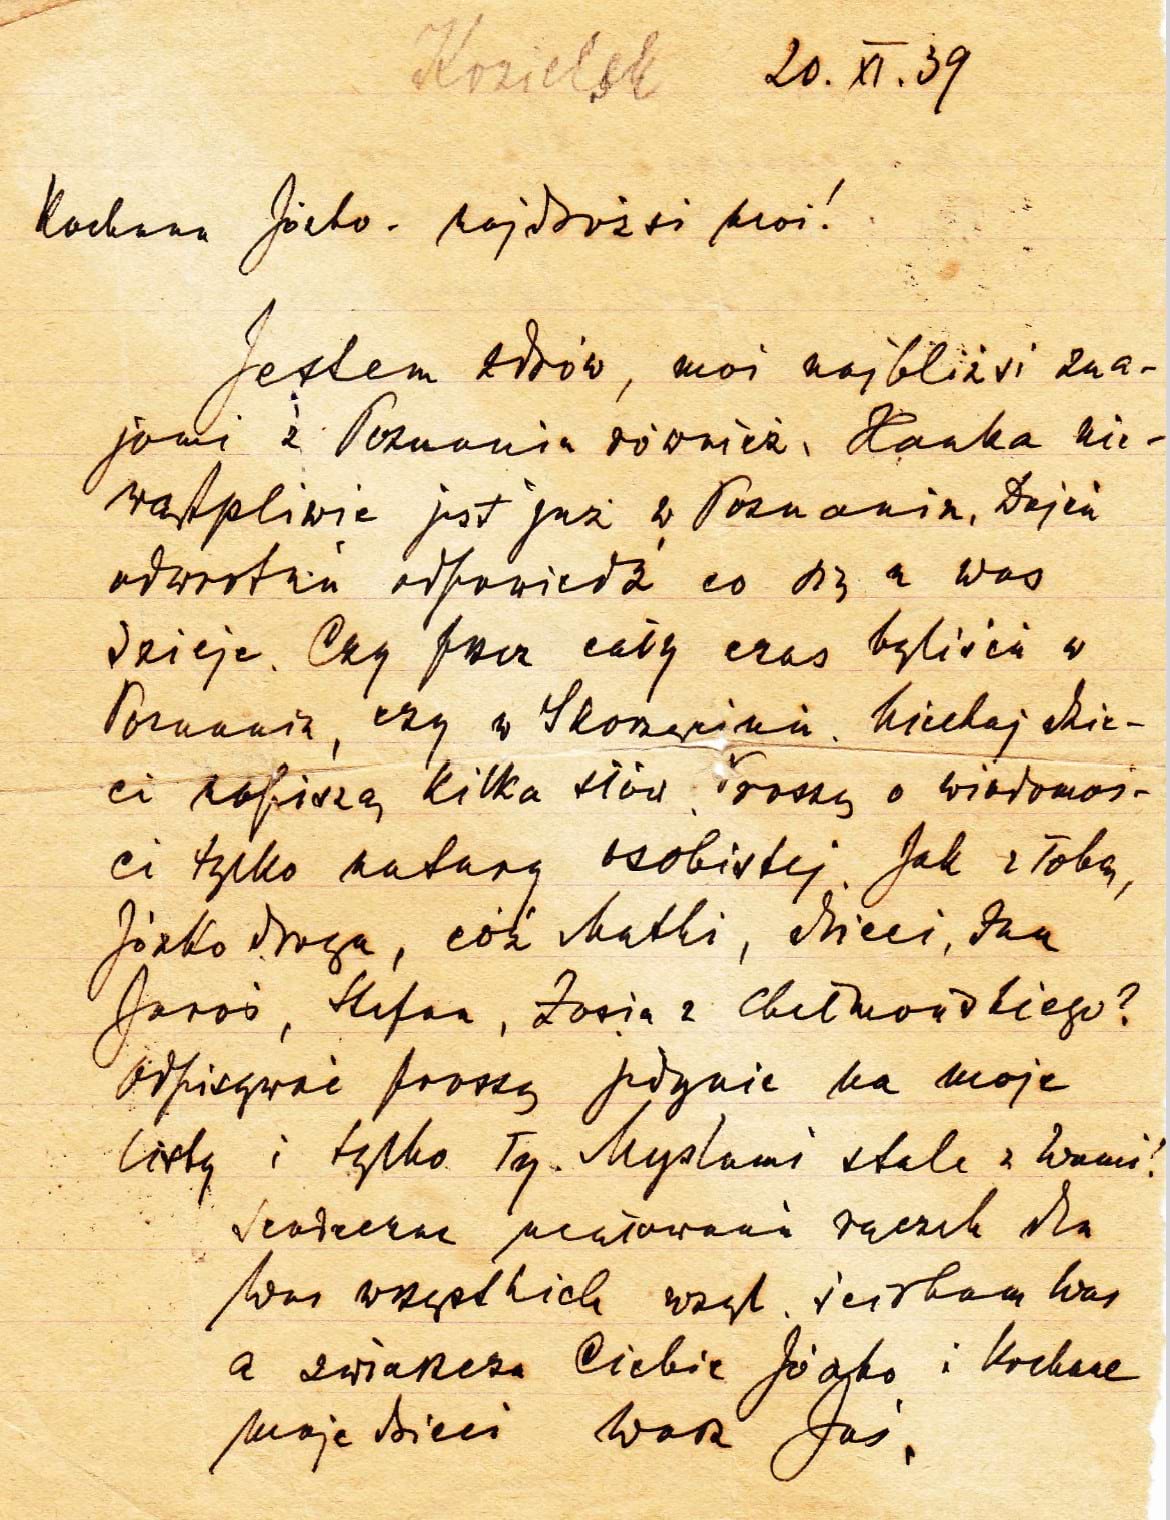 Kozielsk 20. XI. 39
Kochana Józko - najdrożsi moi!
Jestem zdrów, moi najbliżsi zna-
jomi z Poznania również. Hanka nie-
wątpliwie jest już w Poznaniu. Dajcie
odwrotnie odpowiedź co się u was
dzieje. Czy przez cały czas byliście w
Poznaniu, czy w Skorzęcinie. Niechaj dzie-
ci napiszą kilka słów. Proszę o wiadomoś-
ci tylko natury osobistej. Jak z Tobą,
Józko droga, cóż Matki, dzieci,
Jaroś, Stefan, Zosia z Chełmońskiego?
Odpisywać proszę jedynie na moje
listy i tylko Ty. Myślami stale z Wami!
Serdeczne ucałowania rączek dla
Was wszystkich wzgl. ściskam Was
a zwłaszcza Ciebie Józko i Kochane
moje dzieci Wasz Jaś.